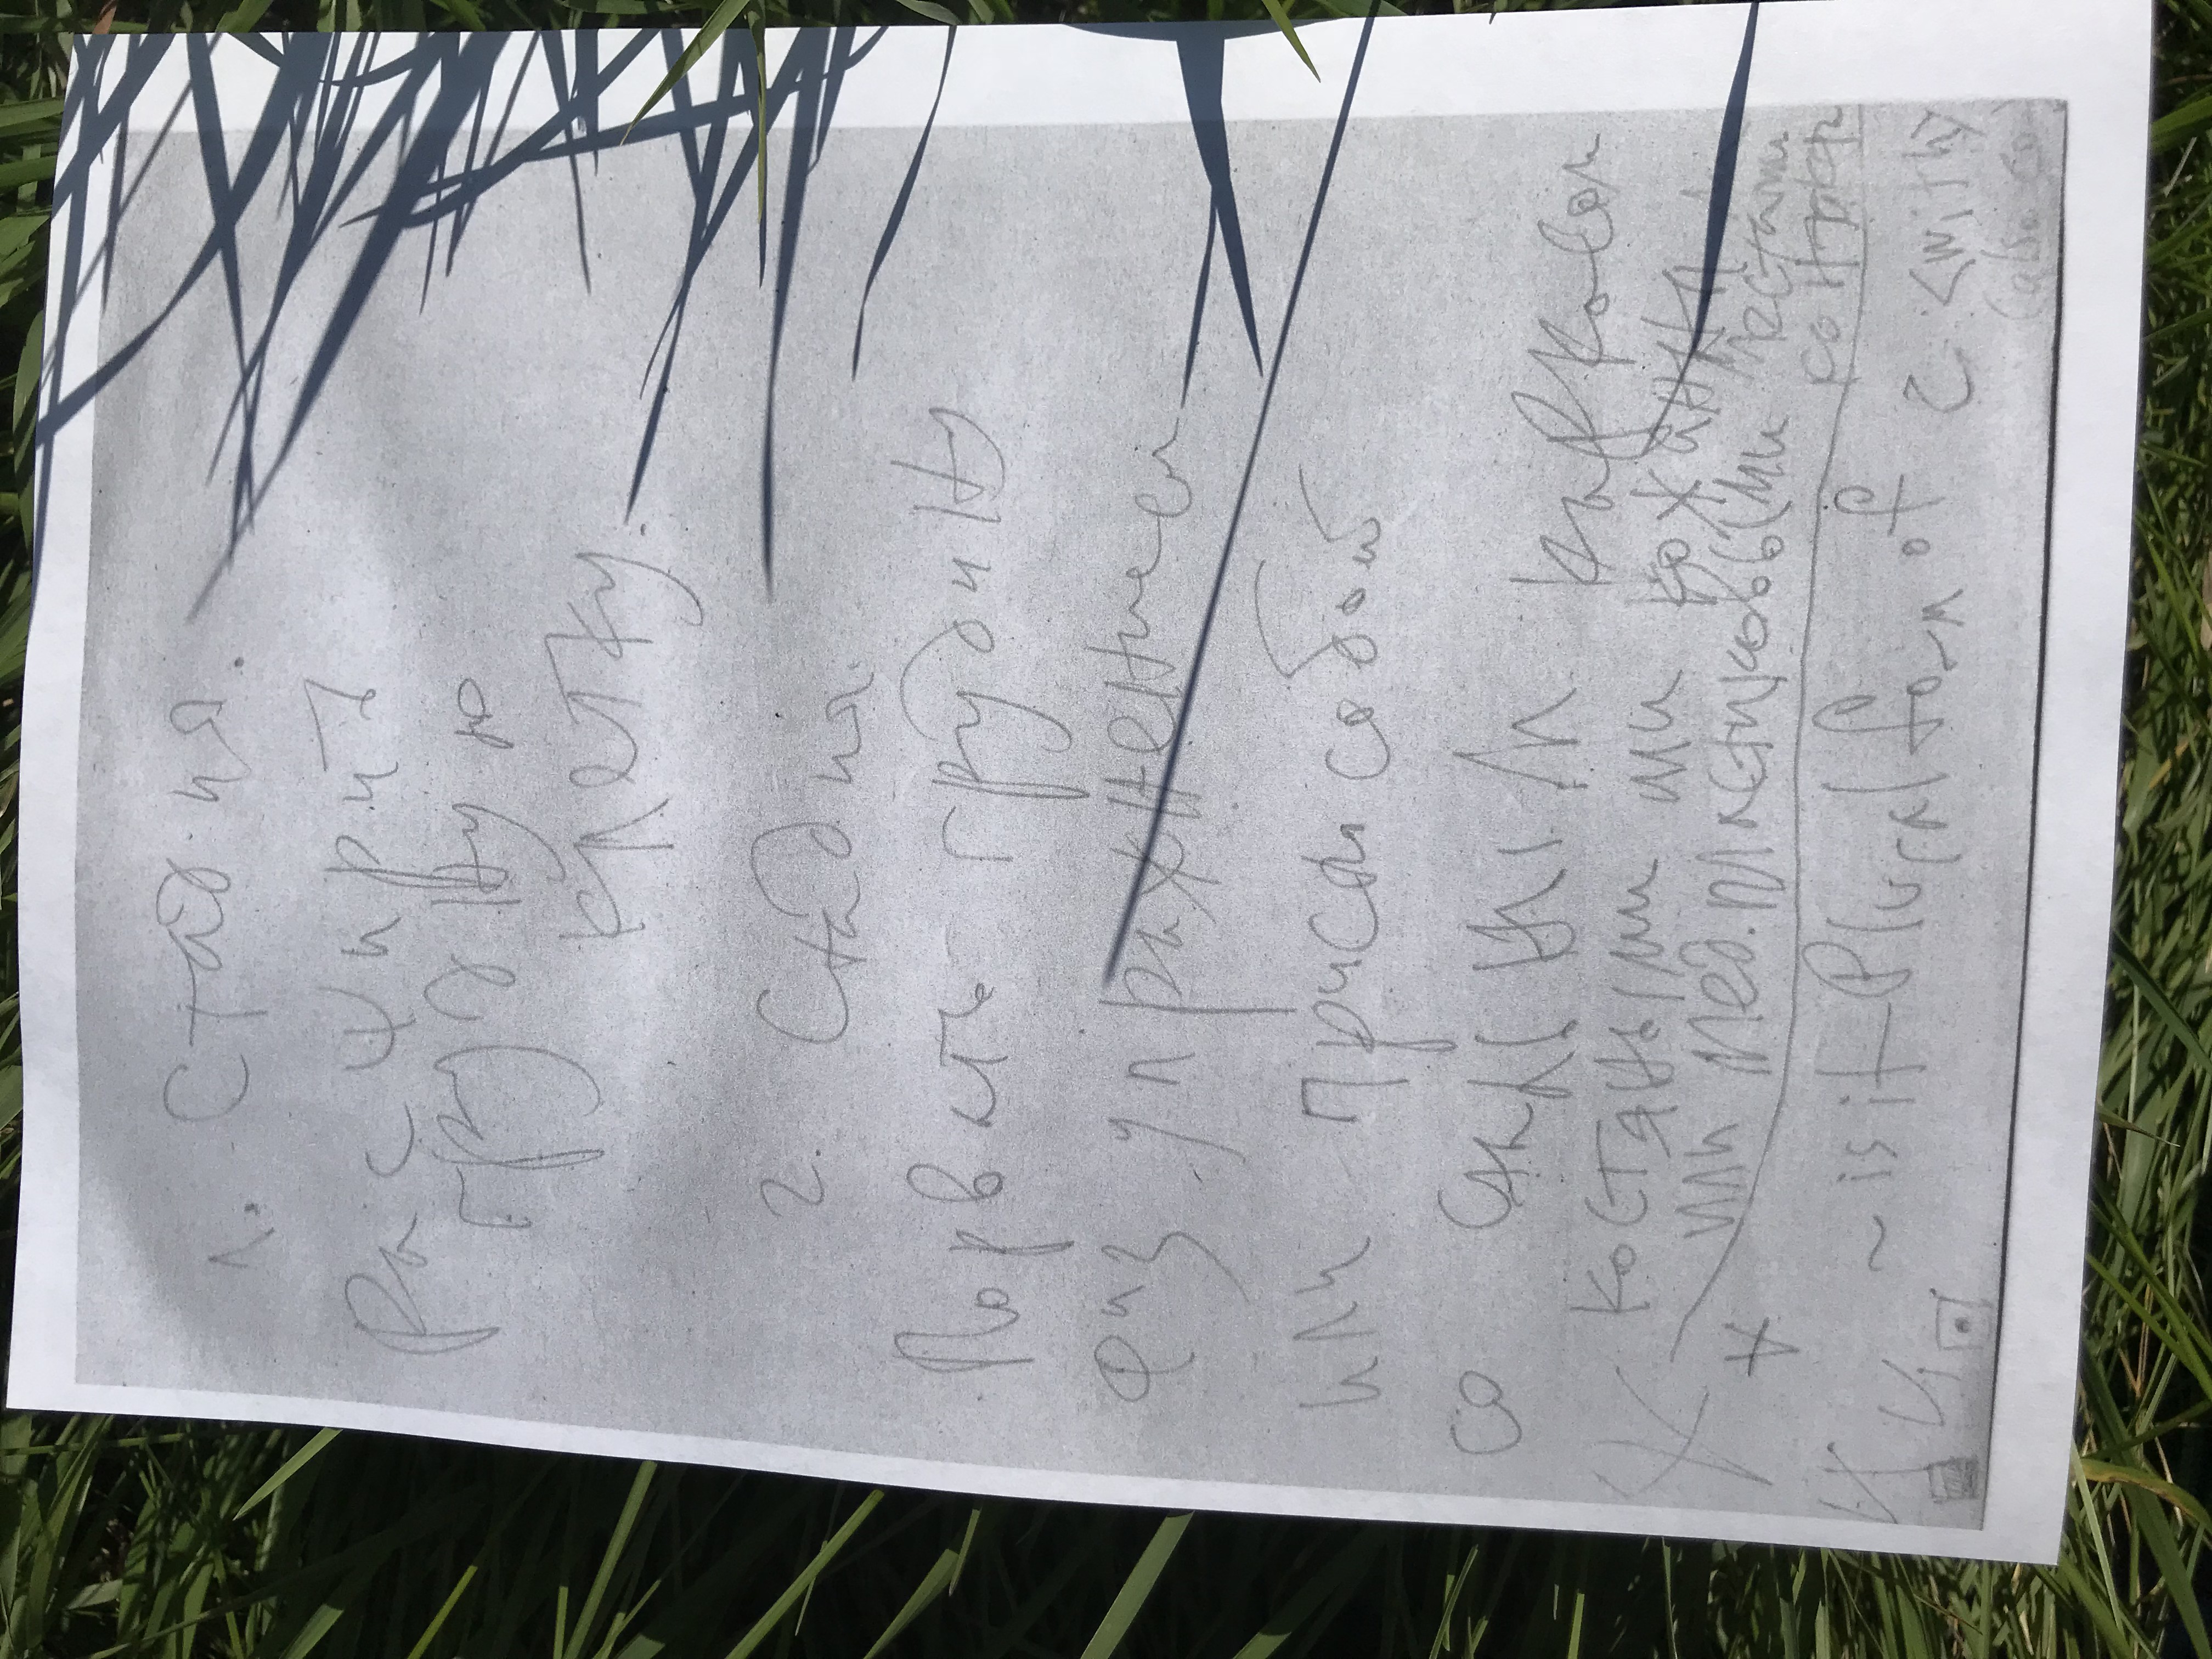 1. Стадия.
расширить
грудную
клетку.
2. Стадия.
Порвать грудину
физ упражнением
или присм собой
со стальным каркасом
костяными или кожанн
или мед. пластиковыми
~ is it Plural form of с <with>
(also со)